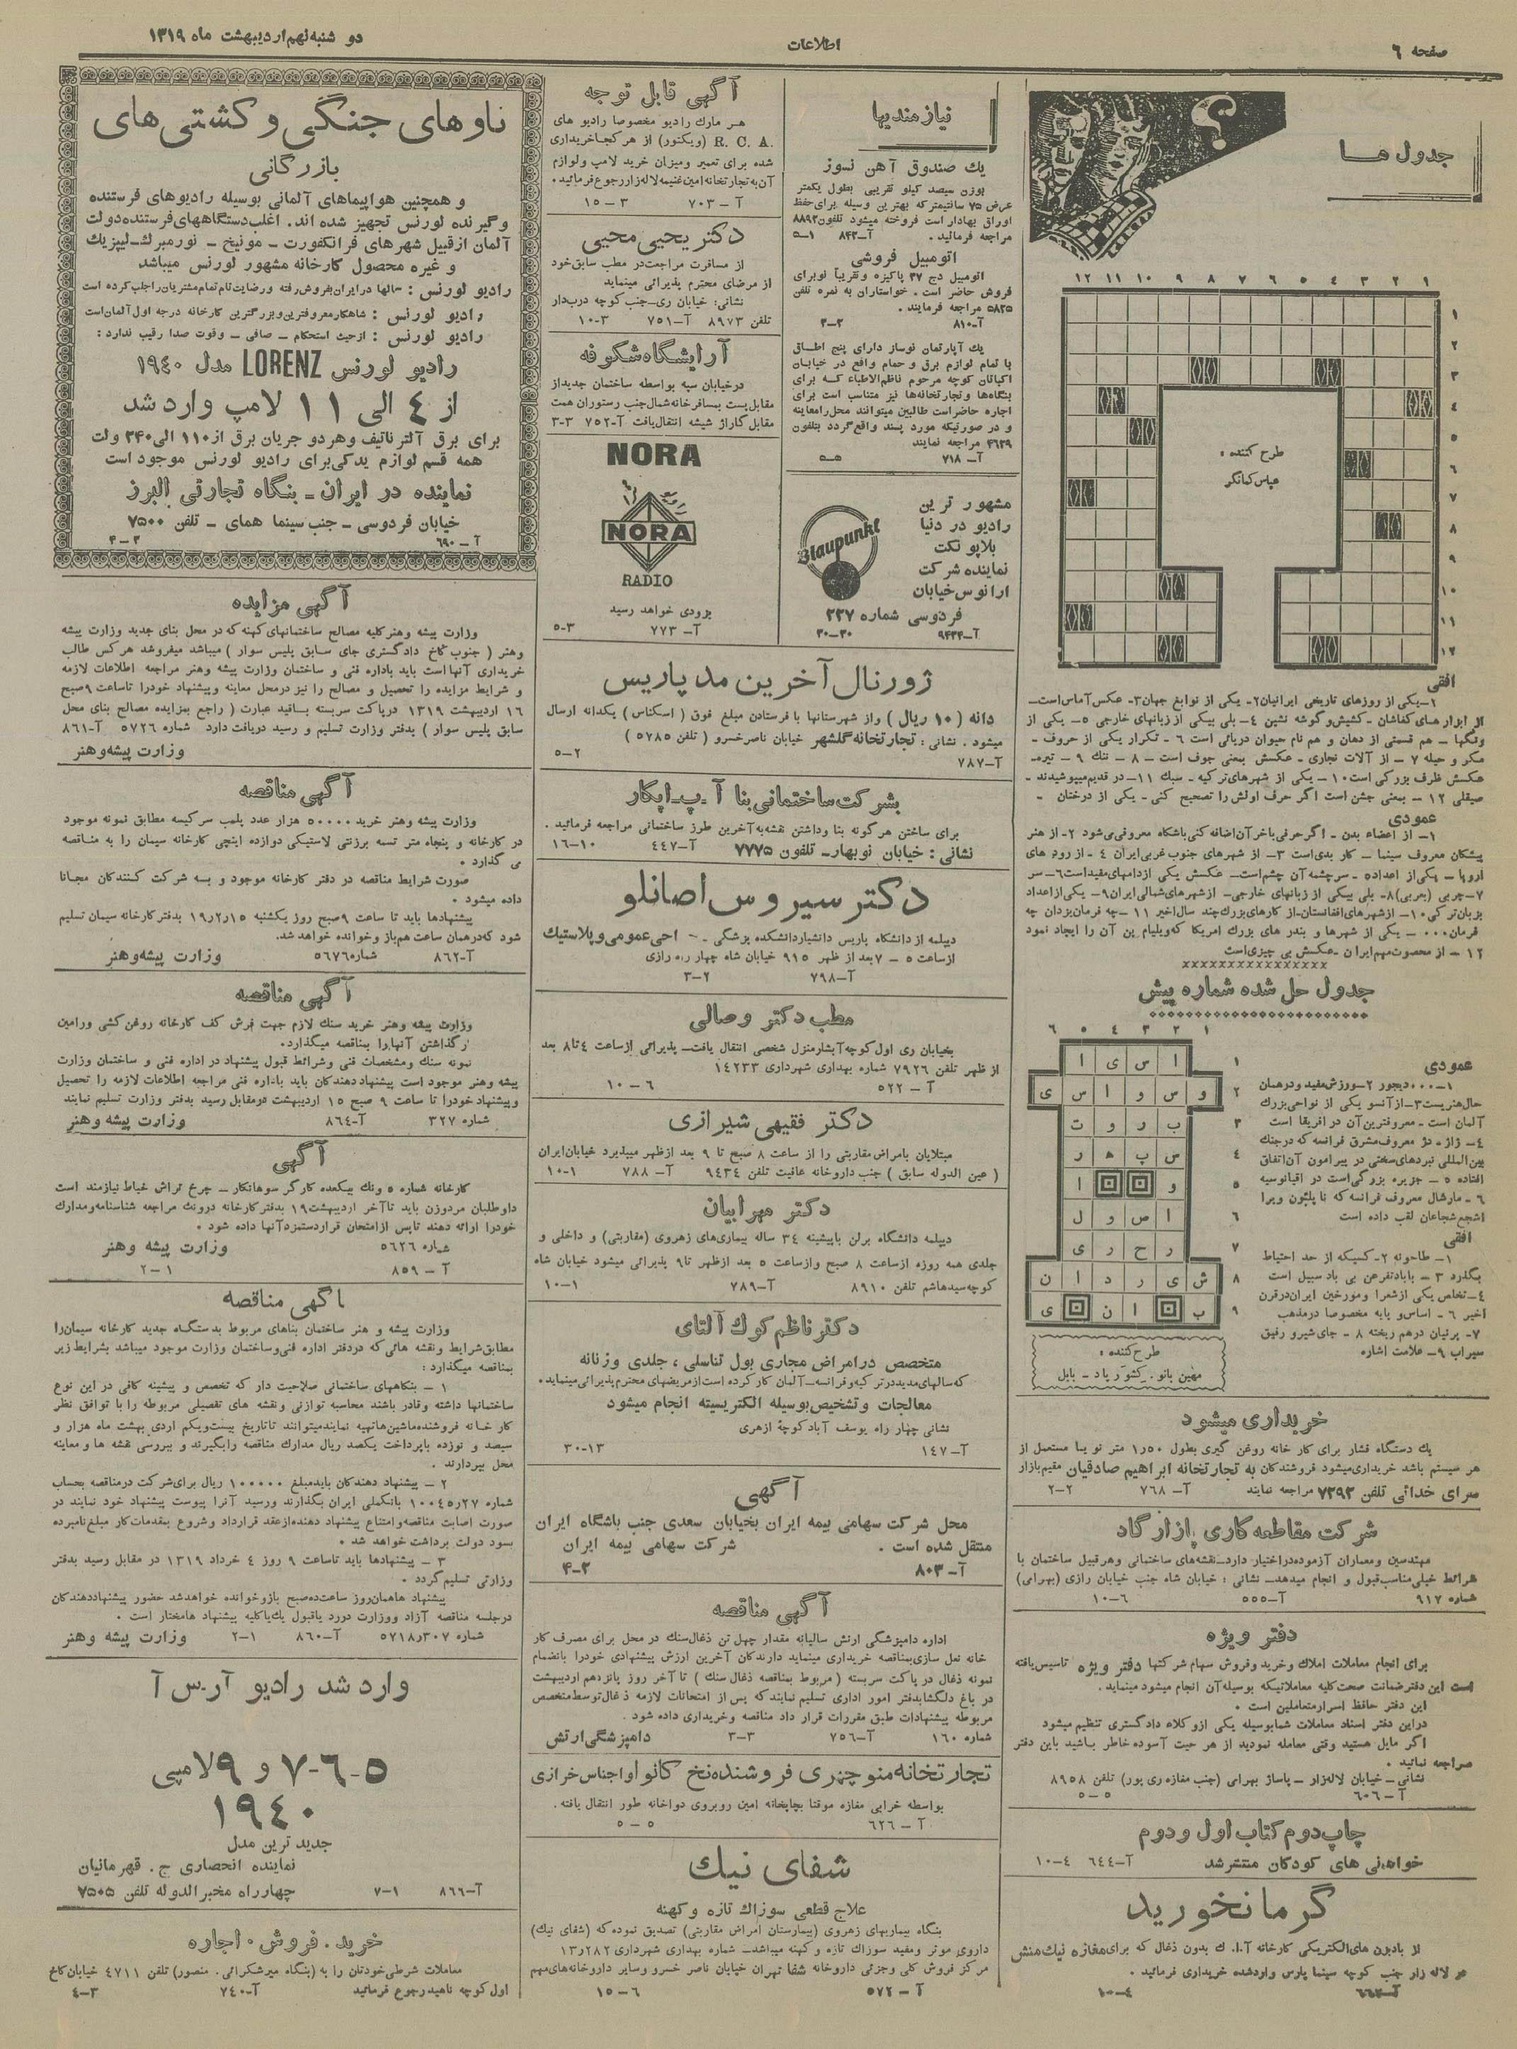 صفحه ۶
اطلاعات
دو شنبه نهم اردیبهشت ماه ۱۳۱۹
جدول ها
۱ ۲ ۳ ۴ ۵ ۶ ۷ ۸ ۹ ۱۰ ۱۱ ۱۲
طرح کننده :
عباس کمانگر
افقی
۱-یکی از روزهای تاریخی ایرانیان ۲- یکی از نوابغ جهان ۳- عکس آماس است-
از ابزار های کفاشان - کشیش و گوشه نشین ٤- بلی بیکی از زبانهای خارجی ٥- یکی از
رنگها - هم قسمتی از دهان و هم نام حیوان دریائی است ٦ - تکرار یکی از حروف -
مکر و حیله ۷ - از آلات نجاری - عکسش بمعنی جوف است - ۸ - ننگ ۹ - تیره-
عکسش ظرف بزرگی است ۱۰- یکی از شهرهای ترکیه - سبك ۱۱- در قدیم میپوشیدند -
صیقلی ۱۲ - بمعنی جشن است اگر حرف اولش را تصحیح کنی - یکی از درختان -
عمودی
۱- از اعضاء بدن - اگر حرفی باخر آن اضافه کنی باشگاه معروفی می شود ۲- از هنر
پیشگان معروف سینما - کار بدی است ۳- از شهرهای جنوب غربی ایران ٤ - از رود های
اروپا - یکی از اعداد ٥- سرچشمه آن چشم است- عکسش یکی از دامهای مفید است ٦- سر
۷-چربی (بعربی) ۸- بلی بیکی از زبانهای خارجی- از شهرهای شمالی ایران ۹- یکی از اعداد
بزبان ترکی ۱۰- از شهرهای افغانستان-از کارهای بزرك چند سال اخیر ۱۱ -چه فرمان یزدان چه
فرمان... - یکی از شهرها و بندر های بزرك امریکا که ویلیام پن آن را ایجاد نمود
۱۲ - از محصوت مهم ایران -عکسش بی چیزی است
جدول حل شده شماره پیش
۱ ۲ ۳ ٤ ٥ ٦
ا س ی ا
و س و ا س ی
ب ر و ت
س ب ه ر
و ا
ا ص و ل
ر ح ر ی
ش ی ر د ا ن
ب ا ن ی
عمودی
۱-...دیجور ۲-ورزش مفید و درهمان
حال هنریست ۳-از آنسو یکی از نواحی بزرك
آلمان است - معروفترین آن در افریقا است
٤- ژاژ - دژ معروف مشرق فرانسه که در جنك
بین المللی نبردهای سختی در پیرامون آن اتفاق
افتاده ٥ - جزیره بزرگی است در اقیانوسیه
٦ - مارشال معروف فرانسه که ناپلئون ویرا
اشجع شجاعان لقب داده است
افقی
۱- طاحونه ۲-کسیکه از حد احتیاط
بگذرد ۳ - بابادتفرعن بی باد سبیل است
٤-تخلص یکی از شعرا و مورخین ایران در قرن
اخیر ٦ - اساس و پایه مخصوصا در مذهب
۷- پرنیان درهم ریخته ۸ - جای شیر و رفیق
سیراب ۹- علامت اشاره
طرح کننده :
مهین بانو . کشور یاد - بابل
خریداری میشود
یك دستگاه فشار برای کار خانه روغن گیری بطول ۱٫٥۰ متر نو یا مستعمل از
هر سیستم باشد خریداری میشود فروشندگان به تجارتخانه ابراهیم صادقیان مقیم بازار
سرای خدائی تلفن ۷۳۹۳ مراجعه نمایند آ- ۷٦۸ ۲-۲
شرکت مقاطعه کاری پازارگاد
مهندسین و معماران آزموده در اختیار دارد-نقشه های ساختمانی و هر قبیل ساختمان با
شرائط خیلی مناسب قبول و انجام میدهد- نشانی : خیابان شاه جنب خیابان رازی (بهرامی)
شماره ۹۱۷ آ-٥٥٥ ٦-۱۰
دفتر ویژه
برای انجام معاملات املاك و خرید و فروش سهام شرکتها دفتر ویژه تاسیس یافته
است این دفتر ضمانت صحت کلیه معاملاتیکه بوسیله آن انجام میشود مینماید.
این دفتر حافظ اسرار متعاملین است .
در این دفتر اسناد معاملات شما بوسیله یکی از وکلاء دادگستری تنظیم میشود
اگر مایل هستید وقتی معامله نمودید از هر حیث آسوده خاطر باشید باین دفتر
مراجعه نمائید .
نشانی - خیابان لاله زار - پاساژ بهرامی (جنب مغازه ری پور) تلفن ۸۹٥۸
آ-٦۰٦ ٥-٥
چاپ دوم کتاب اول و دوم
خواندنی های کودکان منتشر شد آ-٦٤٤ ٤-۱۰
گرما نخورید
از بادبزن های الکتریکی کارخانه آ.ا. ك بدون ذغال که برای مغازه نیك منش
در لاله زار جنب کوچه سینما پارس وارد شده خریداری فرمائید .
٤-۱۰
نیازمندیها
یك صندوق آهن نسوز
بوزن سیصد کیلو تقریبی بطول یکمتر
عرض ۷٥ سانتیمتر که بهترین وسیله برای حفظ
اوراق بهادار است فروخته میشود تلفن ۸۸۹۲
مراجعه فرمائید . آ-۸۴۳ ۱-٥
اتومبیل فروشی
اتومبیل دج ۳۷ پاکیزه و تقریبا نو برای
فروش حاضر است . خواستاران به نمره تلفن
۵۸۲۵ مراجعه فرمایند .
آ-۸۱۰ ۲-۳
یك آپارتمان نوساز دارای پنج اطاق
با تمام لوازم برق و حمام واقع در خیابان
اکباتان کوچه مرحوم ناظم الاطباء که برای
بنگاه ها و تجارتخانه ها نیز متناسب است برای
اجاره حاضر است طالبین میتوانند محل را معاینه
و در صورتیکه مورد پسند واقع گردد بتلفون
۴۶۲۹ مراجعه نمایند
آ- ۷۱۸ ۵-۵
Blaupunkt
مشهور ترین
رادیو در دنیا
بلاپونکت
نماینده شرکت
ارانوس خیابان
فردوسی شماره ۲۲۷
آ-۹۴۳۴ ۲۰-۳۰
آگهی قابل توجه
هر مارك رادیو مخصوصا رادیو های
R. C. A. (ویکتور) از هر کجا خریداری
شده برای تعمیر و میزان خرید لامپ و لوازم
آن به تجارتخانه امین غنیمه لاله زار رجوع فرمائید.
آ- ۷۰۳ ۳-۱٥
دکتر یحیی محیی
از مسافرت مراجعت در مطب سابق خود
از مرضای محترم پذیرائی مینماید
نشانی: خیابان ری-جنب کوچه دربدار
تلفن ۸۹۷۳ آ-۷٥۱ ۳-۱۰
آرایشگاه شکوفه
در خیابان سپه بواسطه ساختمان جدید از
مقابل پست بمسافر خانه شمال جنب رستوران همت
مقابل گاراژ شیشه انتقال یافت آ-۷٥۲ ۳-۳
NORA
NORA
RADIO
بزودی خواهد رسید
آ- ۷۷۳ ۳-٥
ژورنال آخرین مد پاریس
دانه (۱۰ ریال) و از شهرستانها با فرستادن مبلغ فوق (اسکناس) یکدانه ارسال
میشود . نشانی : تجارتخانه گلشهر خیابان ناصر خسرو (تلفن ٥۷۸٥)
آ-۷۸۷ ۲-٥
بشرکت ساختمانی بنا آ-پ-اپکار
برای ساختن هر گونه بنا و داشتن نقشه به آخرین طرز ساختمانی مراجعه فرمائید .
نشانی : خیابان نوبهار- تلفون ۷۷۷٥ آ-٤٤۷ ۱۰-۱٦
دکتر سیروس اصانلو
دیپلمه از دانشگاه پاریس دانشیار دانشکده پزشگی - جراحی عمومی و پلاستیك
از ساعت ٥ - ۷ بعد از ظهر ۹۱٥ خیابان شاه چهار راه رازی
آ-۷۹۸ ۲-۳
مطب دکتر وصالی
بخیابان ری اول کوچه آبشار منزل شخصی انتقال یافت- پذیرائی از ساعت ٤ تا ۸ بعد
از ظهر تلفن ۷۹۲٦ شماره بهداری شهرداری ۱٤۲۳۳
آ- ٥۲۲ ٦-۱۰
دکتر فقیهی شیرازی
مبتلایان بامراض مقاربتی را از ساعت ۸ صبح تا ۹ بعد از ظهر میپذیرد خیابان ایران
(عین الدوله سابق) جنب داروخانه عاقبت تلفن ۹٤۳٤ آ- ۷۸۸ ۱-۱۰
دکتر مهرابیان
دیپلمه دانشگاه برلن با پیشینه ۳٤ ساله بیماری های زهروی (مقاربتی) و داخلی و
جلدی همه روزه از ساعت ۸ صبح و از ساعت ٥ بعد از ظهر تا ۹ پذیرائی میشود خیابان شاه
کوچه سید هاشم تلفن ۸۹۱۰ آ-۷۸۹ ۱-۱۰
دکتر ناظم کوك آلتای
متخصص در امراض مجاری بول تناسلی ، جلدی و زنانه
که سالهای مدید در ترکیه و فرانسه-آلمان کار کرده است از مریضهای محترم پذیرائی مینماید.
معالجات و تشخیص بوسیله الکتریسیته انجام میشود
نشانی چهار راه یوسف آباد کوچه ازهری
آ-۱٤۷ ۱۳-۳۰
آگهی
محل شرکت سهامی بیمه ایران بخیابان سعدی جنب باشگاه ایران
منتقل شده است . شرکت سهامی بیمه ایران
آ- ۸۰۳ ۲-۴
آگهی مناقصه
اداره دامپزشگی ارتش سالیانه مقدار چهل تن ذغال سنك در محل برای مصرف کار
خانه نعل سازی بمناقصه خریداری مینماید دارندگان آخرین ارزش پیشنهادی خود را بانضمام
نمونه ذغال در پاکت سربسته (مربوط بمناقصه ذغال سنك) تا آخر روز پانزدهم اردیبهشت
در باغ دلگشا بدفتر امور اداری تسلیم نمایند که پس از امتحانات لازمه ذغال توسط متخصص
مربوطه پیشنهادات طبق مقررات قرار داد مناقصه و خریداری داده شود .
شماره ۱٦۰ آ-۷٥٦ ۳-۳ دامپزشگی ارتش
تجارتخانه منوچهری فروشنده نخ کانوا و اجناس خرازی
بواسطه خرابی مغازه موقتا بچاپخانه امین روبروی دواخانه طور انتقال یافته .
آ- ٦۲٦ ٥-٥
شفای نیك
علاج قطعی سوزاك تازه و کهنه
بنگاه بیماریهای زهروی (بیمارستان امراض مقاربتی) تصدیق نموده که (شفای نیك)
داروی موثر و مفید سوزاك تازه و کهنه میباشد- شماره بهداری شهرداری ۱۳٫۲۸۲
مرکز فروش کلی و جزئی داروخانه شفا تهران خیابان ناصر خسرو و سایر داروخانه های مهم
آ- ٥۷۲ ٦-۱٥
ناوهای جنگی و کشتی های
بازرگانی
و همچنین هواپیماهای آلمانی بوسیله رادیوهای فرستنده
و گیرنده لورنس تجهیز شده اند. اغلب دستگاههای فرستنده دولت
آلمان از قبیل شهر های فرانکفورت - مونیخ - نورمبرك-لیپزیك
و غیره محصول کارخانه مشهور لورنس میباشد
رادیو لورنس : سالها در ایران بفروش رفته و رضایت تام تمام مشتریان را جلب کرده است
رادیو لورنس : شاهکار معروفترین و بزرگترین کارخانه درجه اول آلمان است
رادیو لورنس : از حیث استحکام - صافی - وقوت صدا رقیب ندارد :
رادیو لورنس LORENZ مدل ۱۹٤۰
از ٤ الی ۱۱ لامپ وارد شد
برای برق آلترناتیف و هر دو جریان برق از ۱۱۰ الی ۲۴۰ ولت
همه قسم لوازم یدکی برای رادیو لورنس موجود است
نماینده در ایران - بنگاه تجارتی البرز
خیابان فردوسی - جنب سینما همای - تلفن ۷۵۰۰
آ- ۶۹۰ ۳-۴
آگهی مزایده
وزارت پیشه و هنر کلیه مصالح ساختمانهای کهنه که در محل بنای جدید وزارت پیشه
و هنر (جنوب کاخ دادگستری جای سابق پلیس سوار) میباشد میفروشد هر کس طالب
خریداری آنها است باید باداره فنی و ساختمان وزارت پیشه و هنر مراجعه اطلاعات لازمه
و شرایط مزایده را تحصیل و مصالح را نیز در محل معاینه و پیشنهاد خود را تا ساعت ۹ صبح
۱٦ اردیبهشت ۱۳۱۹ در پاکت سربسته باقید عبارت (راجع بمزایده مصالح بنای محل
سابق پلیس سوار) بدفتر وزارت تسلیم و رسید دریافت دارد شماره ٥۷۲٦ آ-۸٦۱
وزارت پیشه و هنر
آگهی مناقصه
وزارت پیشه و هنر خرید ٥۰۰۰۰ هزار عدد پلمب سر کیسه مطابق نمونه موجود
در کارخانه و پنجاه متر تسمه برزنتی لاستیکی دوازده اینچی کارخانه سیمان را به مناقصه
می گذارد .
صورت شرایط مناقصه در دفتر کارخانه موجود و به شرکت کنندگان مجانا
داده میشود .
پیشنهادها باید تا ساعت ۹ صبح روز یکشنبه ۱۹٫۲٫۱٥ بدفتر کارخانه سیمان تسلیم
شود که در همان ساعت هم باز و خوانده خواهد شد.
آ-۸٦۲ شماره ٥٦۷٦ وزارت پیشه و هنر
آگهی مناقصه
وزارت پیشه و هنر خرید سنك لازم جهت فرش کف کارخانه روغن کشی ورامین
و گذاشتن آنها را بمناقصه میگذارد.
نمونه سنك و مشخصات فنی و شرائط قبول پیشنهاد در اداره فنی و ساختمان وزارت
پیشه و هنر موجود است پیشنهاد دهندگان باید باداره فنی مراجعه اطلاعات لازمه را تحصیل
و پیشنهاد خود را تا ساعت ۹ صبح ۱٥ اردیبهشت در مقابل رسید بدفتر وزارت تسلیم نمایند
شماره ۳۲۷ آ-۸٦٤ وزارت پیشه و هنر
آگهی
کارخانه شماره ٥ ونك بیکعده کارگر سوهانکار - چرخ تراش خیاط نیازمند است
داوطلبان مردوزن باید تا آخر اردیبهشت ۱۹ بدفتر کارخانه در ونك مراجعه شناسنامه و مدارك
خود را ارائه دهند تا پس از امتحان قرار دستمزد آنها داده شود .
شماره ٥٦۲٦ وزارت پیشه و هنر
آ- ۸٥۹ ۱-۲
آگهی مناقصه
وزارت پیشه و هنر ساختمان بناهای مربوط بدستگاه جدید کارخانه سیمان را
مطابق شرایط و نقشه هائی که در دفتر اداره فنی و ساختمان وزارت موجود میباشد بشرایط زیر
بمناقصه میگذارد :
۱ - بنگاههای ساختمانی صلاحیت دار که تخصص و پیشینه کافی در این نوع
ساختمانها داشته و قادر باشند محاسبه توازنی و نقشه های تفصیلی مربوطه را با توافق نظر
کار خانه فروشنده ماشین ها تهیه نمایند میتوانند تا تاریخ بیست و یکم اردی بهشت ماه هزار و
سیصد و نوزده با پرداخت یکصد ریال مدارك مناقصه را بگیرند و ببررسی نقشه ها و معاینه
محل بپردازند .
۲ - پیشنهاد دهندگان باید مبلغ ۱۰۰۰۰۰ ریال برای شرکت در مناقصه بحساب
شماره ۱۰۰٤٥٫۲۷ بانکملی ایران بگذارند و رسید آنرا پیوست پیشنهاد خود نمایند در
صورت اصابت مناقصه و امتناع پیشنهاد دهنده از عقد قرارداد و شروع بمقدمات کار مبلغ نامبرده
بسود دولت برداشت خواهد شد .
۳ - پیشنهادها باید تا ساعت ۹ روز ٤ خرداد ۱۳۱۹ در مقابل رسید بدفتر
وزارتی تسلیم گردد .
پیشنهاد ها همان روز ساعت ده صبح باز و خوانده خواهد شد حضور پیشنهاد دهندگان
در جلسه مناقصه آزاد و وزارت در رد یا قبول یك یا کلیه پیشنهاد ها مختار است .
شماره ٥۷۱۸٫۳۰۷ آ-۸٦۰ ۱-۲ وزارت پیشه و هنر
وارد شد رادیو آر-س آ
٥-٦-۷ و ۹ لامپی
۱۹٤۰
جدید ترین مدل
نماینده انحصاری ج . قهرمانیان
چهارراه مخبرالدوله تلفن ۷۵۰۵ آ-۸٦٦ ۱-۷
خرید . فروش . اجاره
معاملات شرطی خودتان را به (بنگاه میرشکرائی . منصور) تلفن ٤۷۱۱ خیابان کاخ
اول کوچه ناهید رجوع فرمائید آ-۷٤۰ ۳-٤